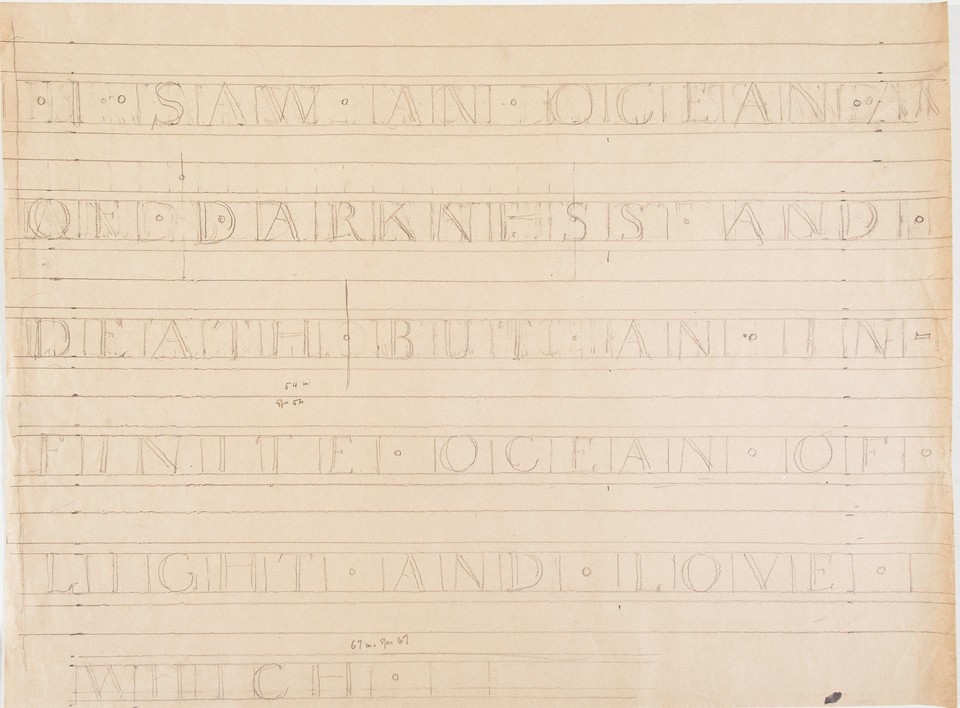 · I · SAW · AN · OCEAN ·
OF · DARKNESS · AND ·
DEATH · BUT · AN · IN-
FINITE · OCEAN · OF ·
LIGHT · AND · LOVE ·
WHICH ·